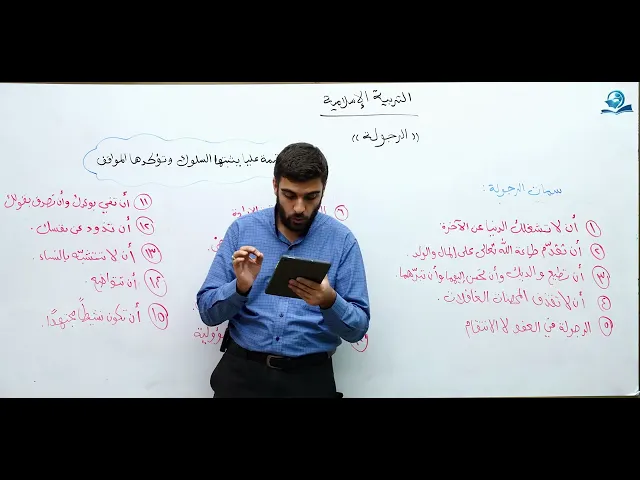 التربية الإسلامية
((الرجولة))
قمة عليا يثبتها السلوك وتؤكدها المواقف
سمات الرجولة:
١ أن لا تشغلك الدنيا عن الآخرة.
٢ أن تقدّم طاعة الله تعالى على المال والولد.
٣ أن تطيع والديك وأن تحسن إليهما وأن تبرّهما.
٤ أن لا تقذف المحصنات الغافلات.
٥ الرجولة في العفو لا الانتقام
٦
١١ أن تفي بوعدك وأن تصدق بقولك
١٢ أن تذود عن نفسك.
١٣ أن لا تتشبّه بالنساء.
١٤ أن تتواضع.
١٥ أن تكون نشيطًا مجتهدًا.